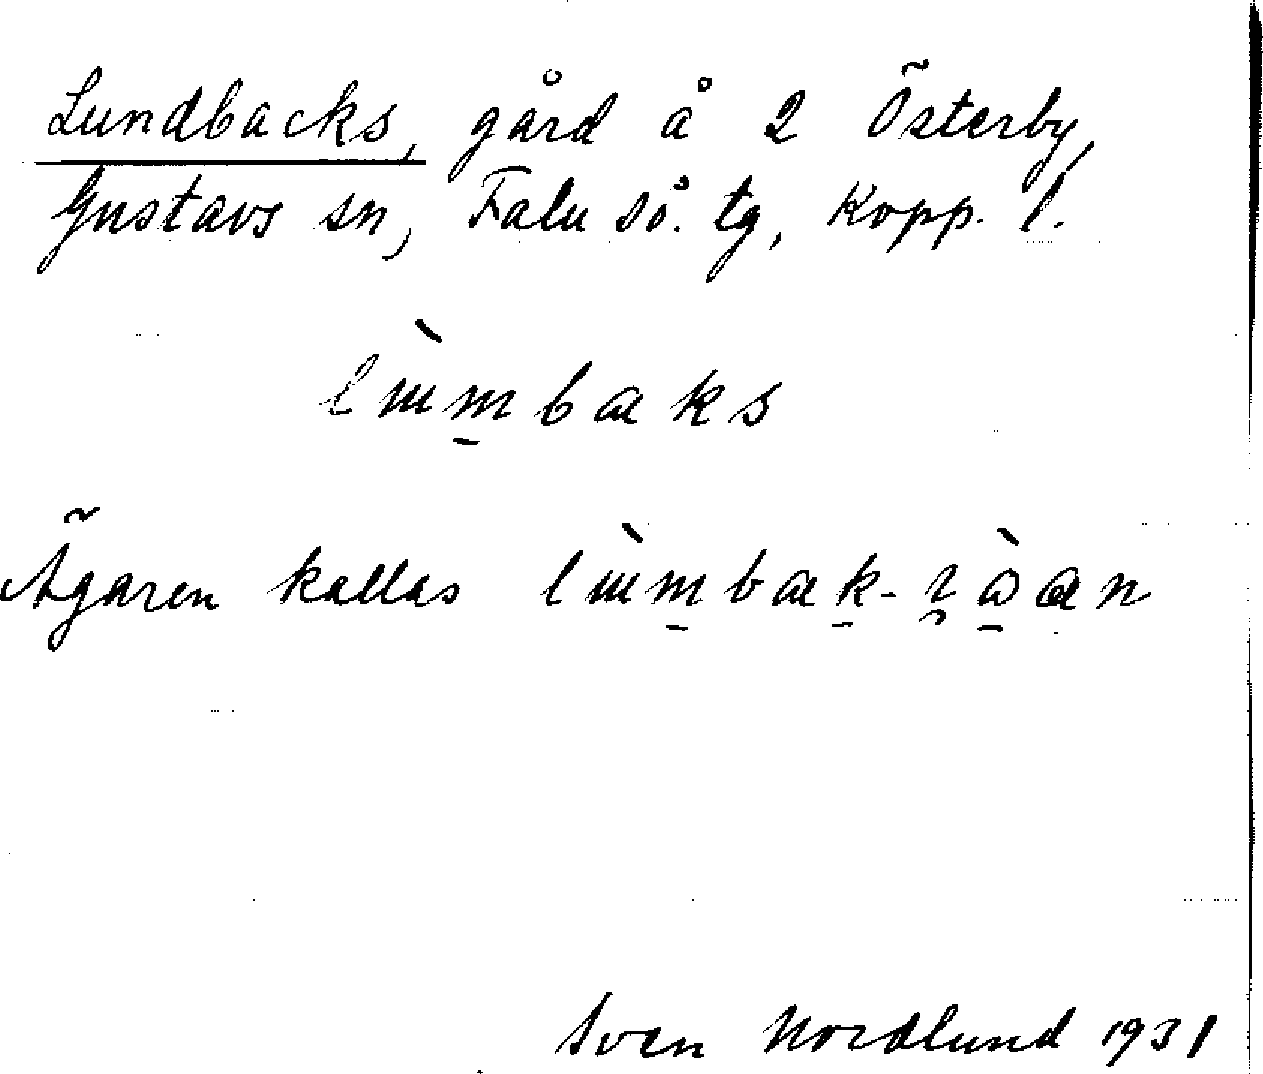 Lundbacks, gård å 2 Österby,
Gustavs sn, Falu sö. tg, Kopp. l.
lùmbaks
Ägaren kallas lùmbak-
Sven Nordlund 1931